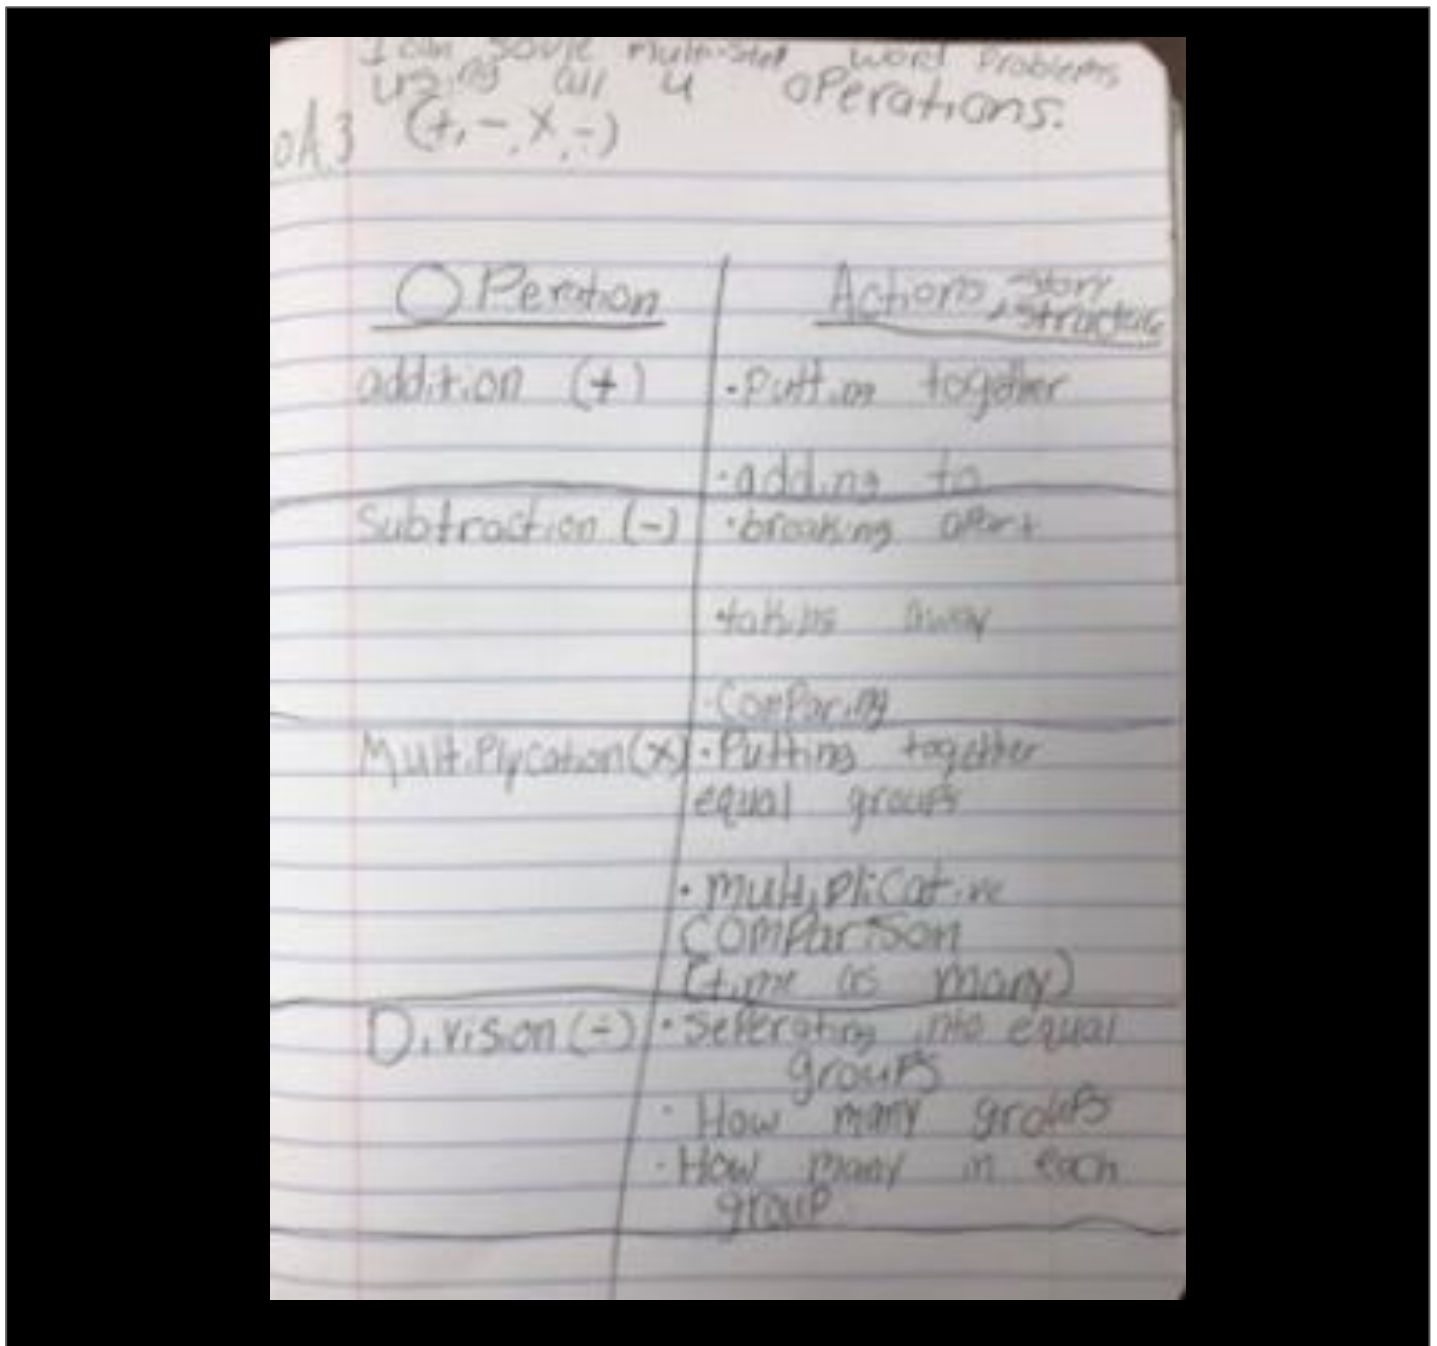 I can solve multi-step word problems
using all 4 operations.
OA.3 (+, -, x, ÷)
Operation
Actions, Story
Structure
addition (+)
• putting together
• adding to
Subtraction (-)
• breaking apart
• taking away
• Comparing
MultiPlycation (x)
• Putting together
equal groups
• multiplicative
comparison
(time as many)
Division (÷)
• Sepperating into equal
groups
• How many groups
• How many in each
group